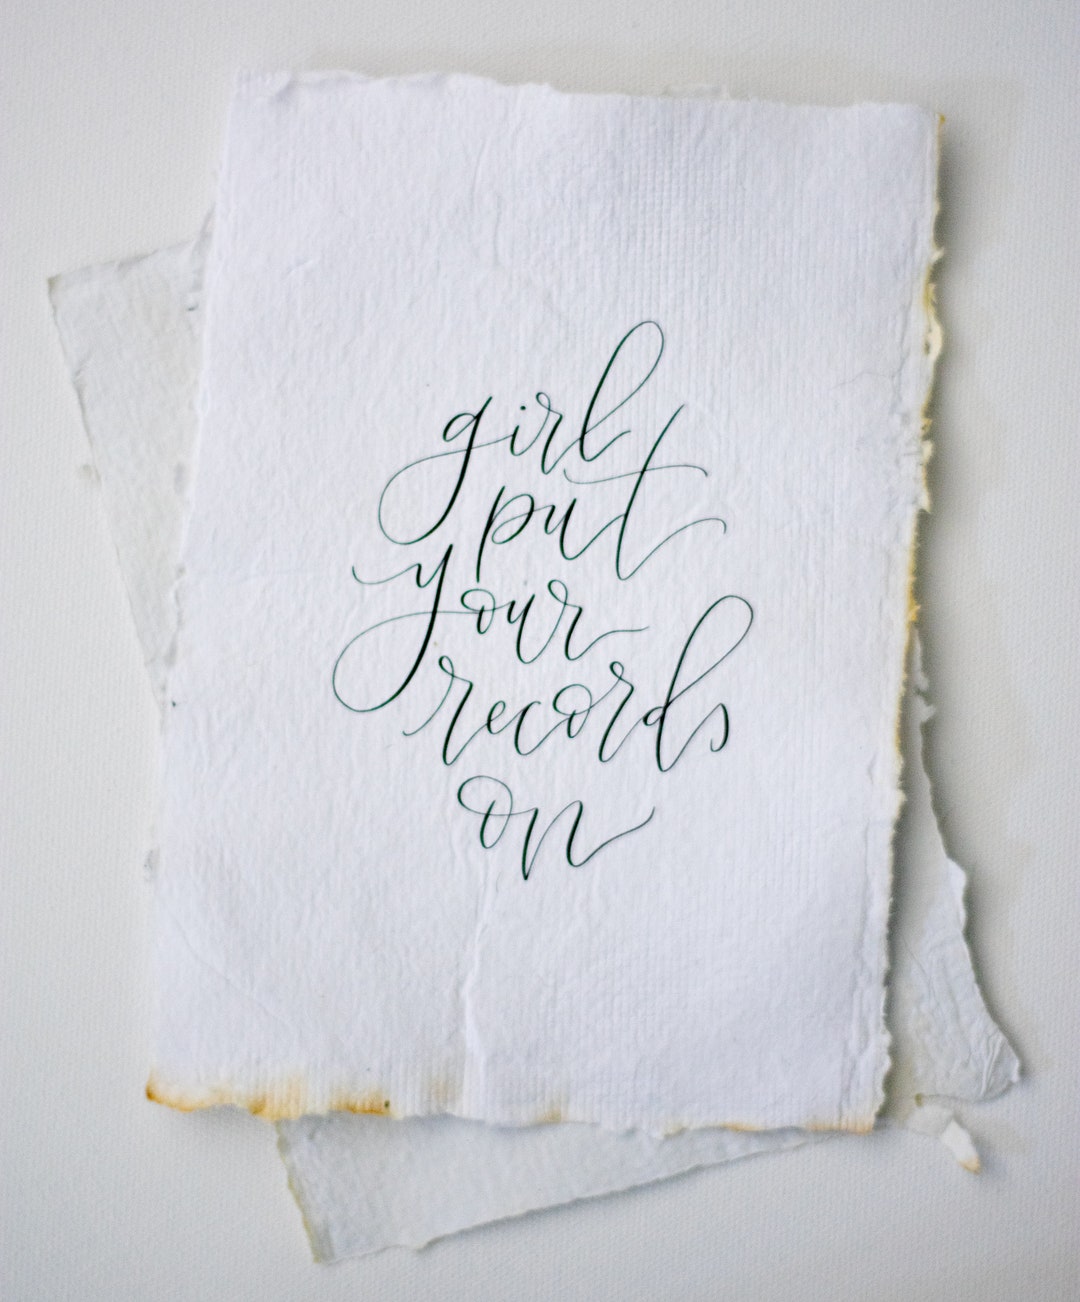 girl
put
your
records
on